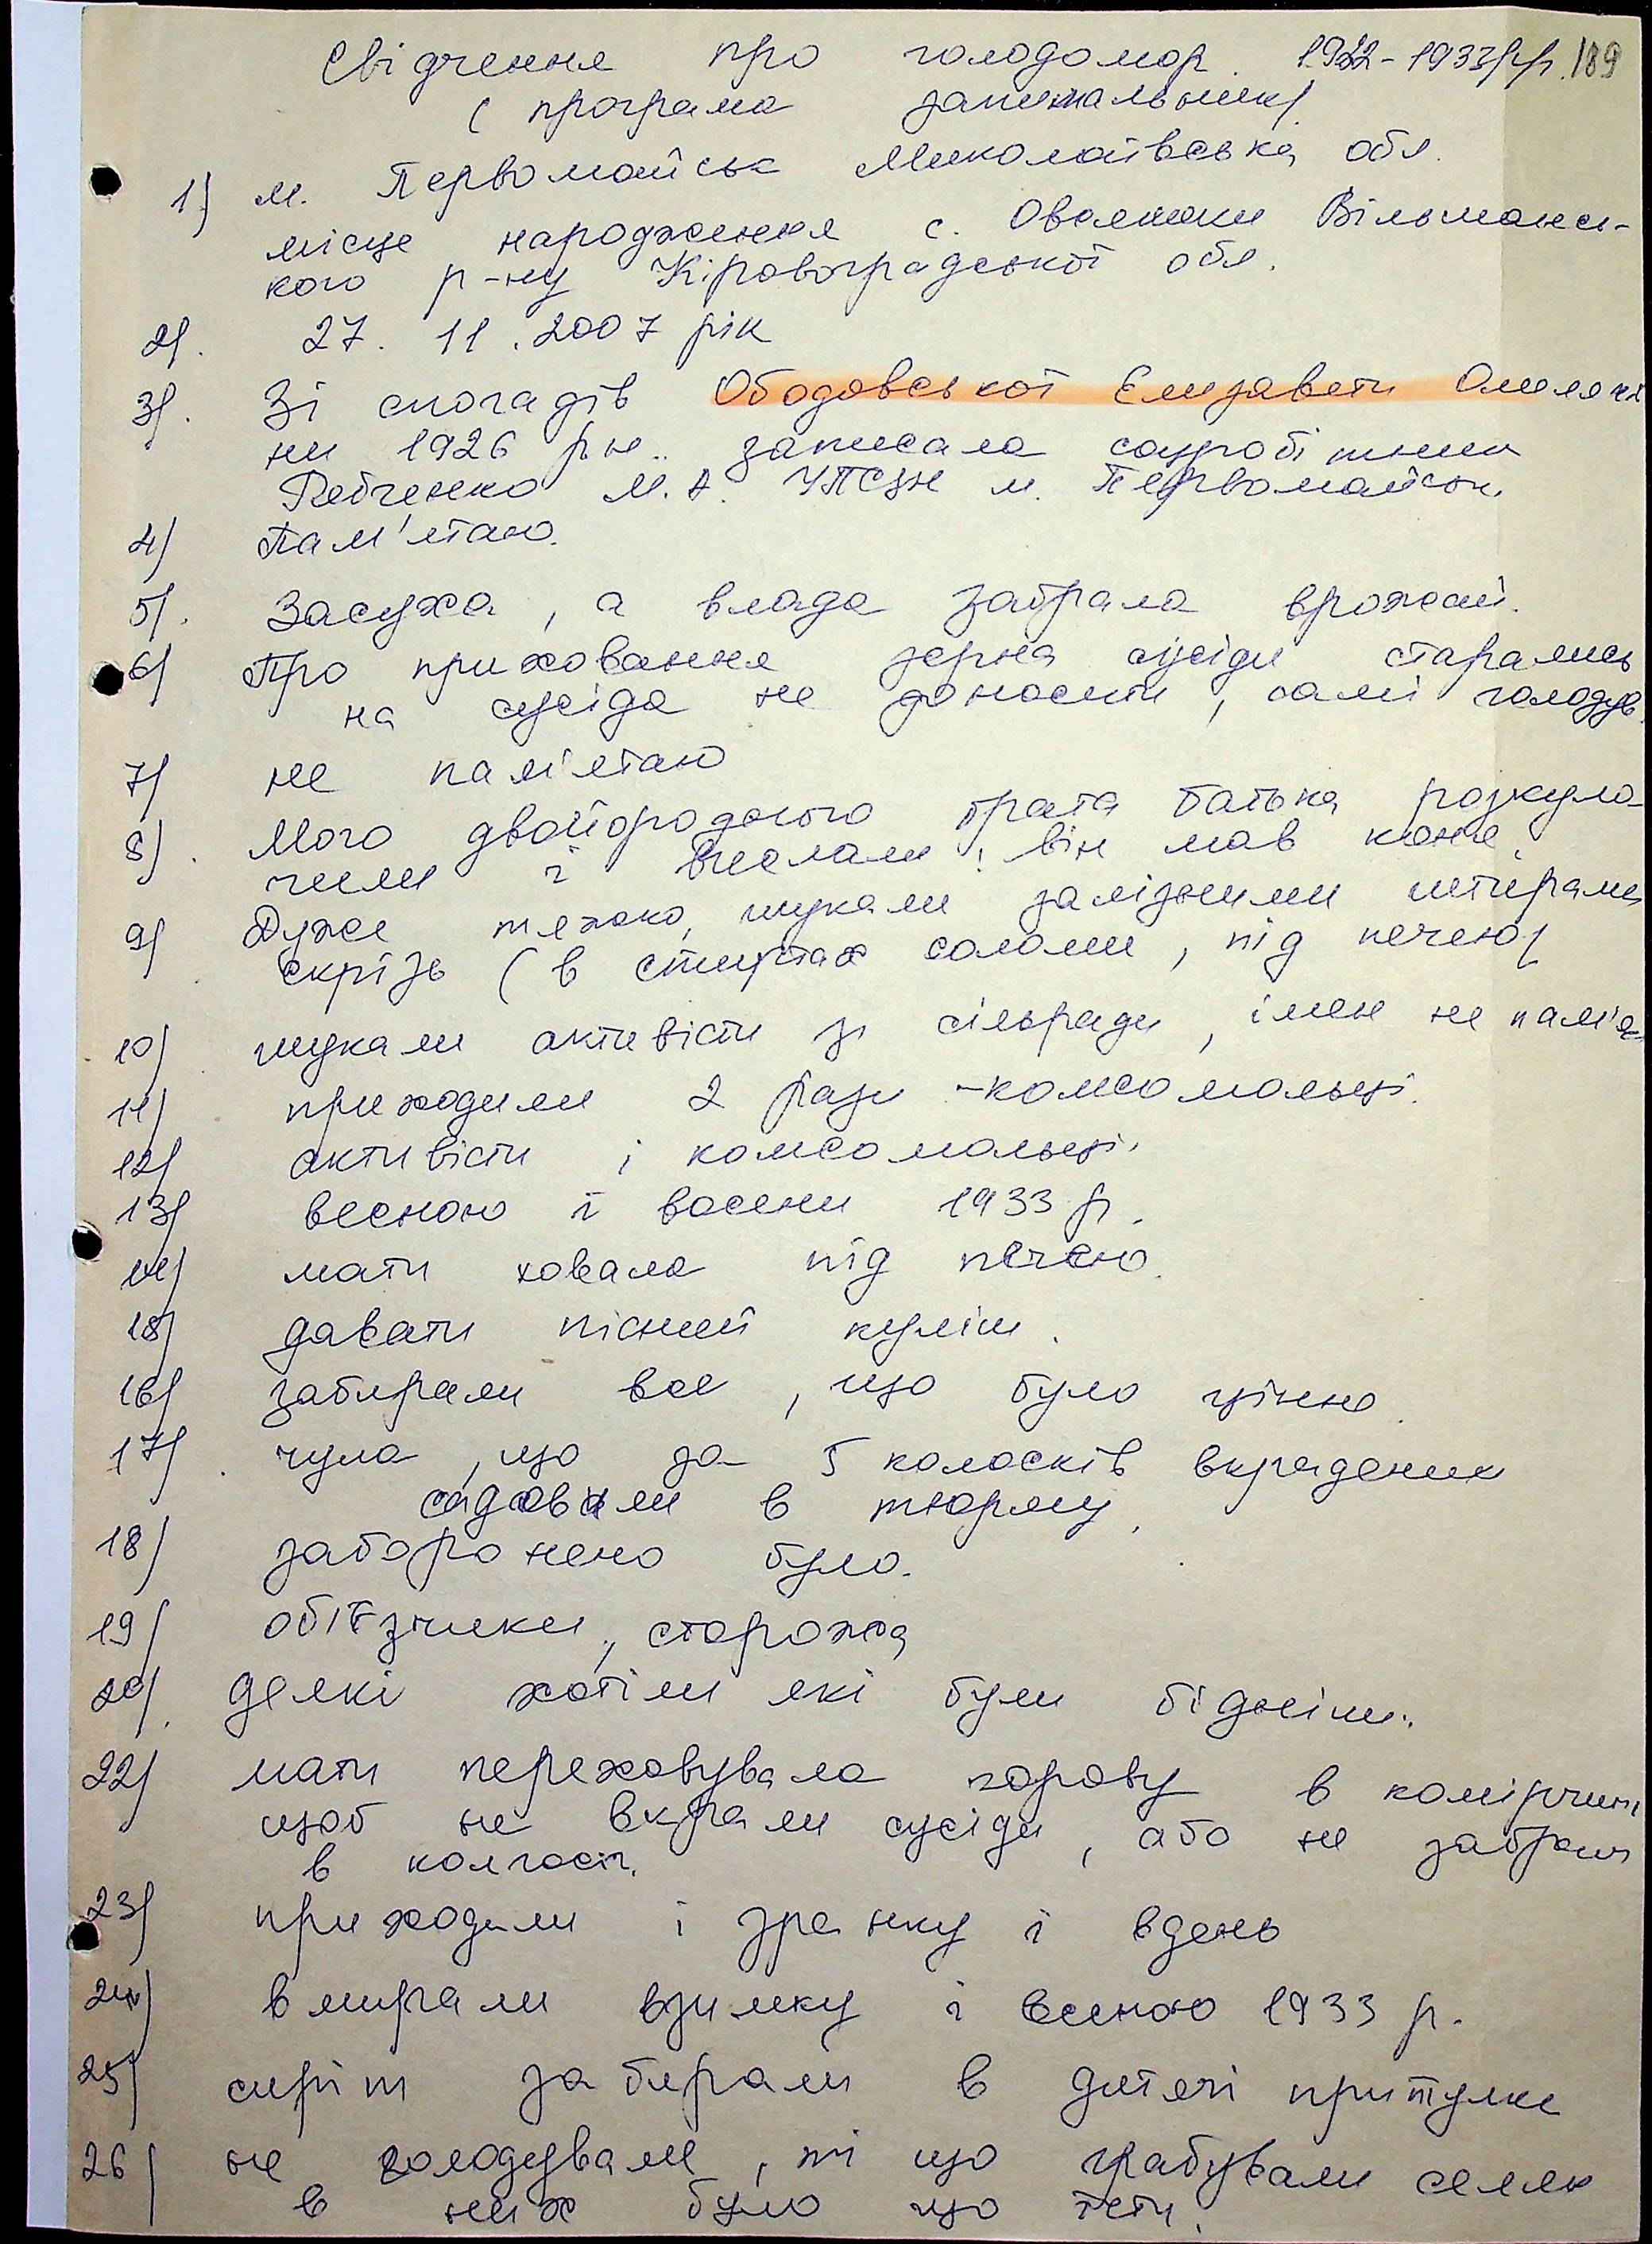 Свідчення про голодомор 1922-1933рр. 189
(програма запитальник)
1) м. Первомайськ Миколаївська обл.
місце народження с. Овалюки Вільшансь-
кого р-ну Кіровоградської обл.
2). 27. 11. 2007 рік
3). Зі спогадів Ободовської Єлизавети Омеля
ни 1926 р.н.. записала соцробітник
М.А. УПСЗН м. Первомайськ.
4) Пам'ятаю.
5). Засуха, а влада забрала врожай.
6) Про приховання зерна сусіди старались
на сусіда не доносити, самі голодув.
7) не пам'ятаю
8). Мого двоюродного брата батька розкула-
чили і вислали, він мав коня.
9) Дуже тяжко, шукали залізними штирами
скрізь (в стиртах соломи, під печею)
10) шукали активісти зі сільради, імен не пам'я
11) приходили 2 рази - комсомольці.
12) активісти і комсомольці.
13) весною і восени 1933 р.
14) мати ховала під печею.
15) давати пісний куліш.
16) забирали все, що було цінне.
17) чула, що за 5 колосків вкрадених
садовили в тюрму.
18) заборонено було.
19) об'їзчики, сторожа
20). деякі хотіли які були бідніші.
22) мати переховувала корову в комірчині
щоб не вкрали сусіди, або не забрали
в колгосп.
23) приходили і зранку і вдень
24) вмирали взимку і весною 1933 р.
25) сиріт забирали в дитячі притулки
26) не голодували, ті що грабували селян
в них було що їсти.